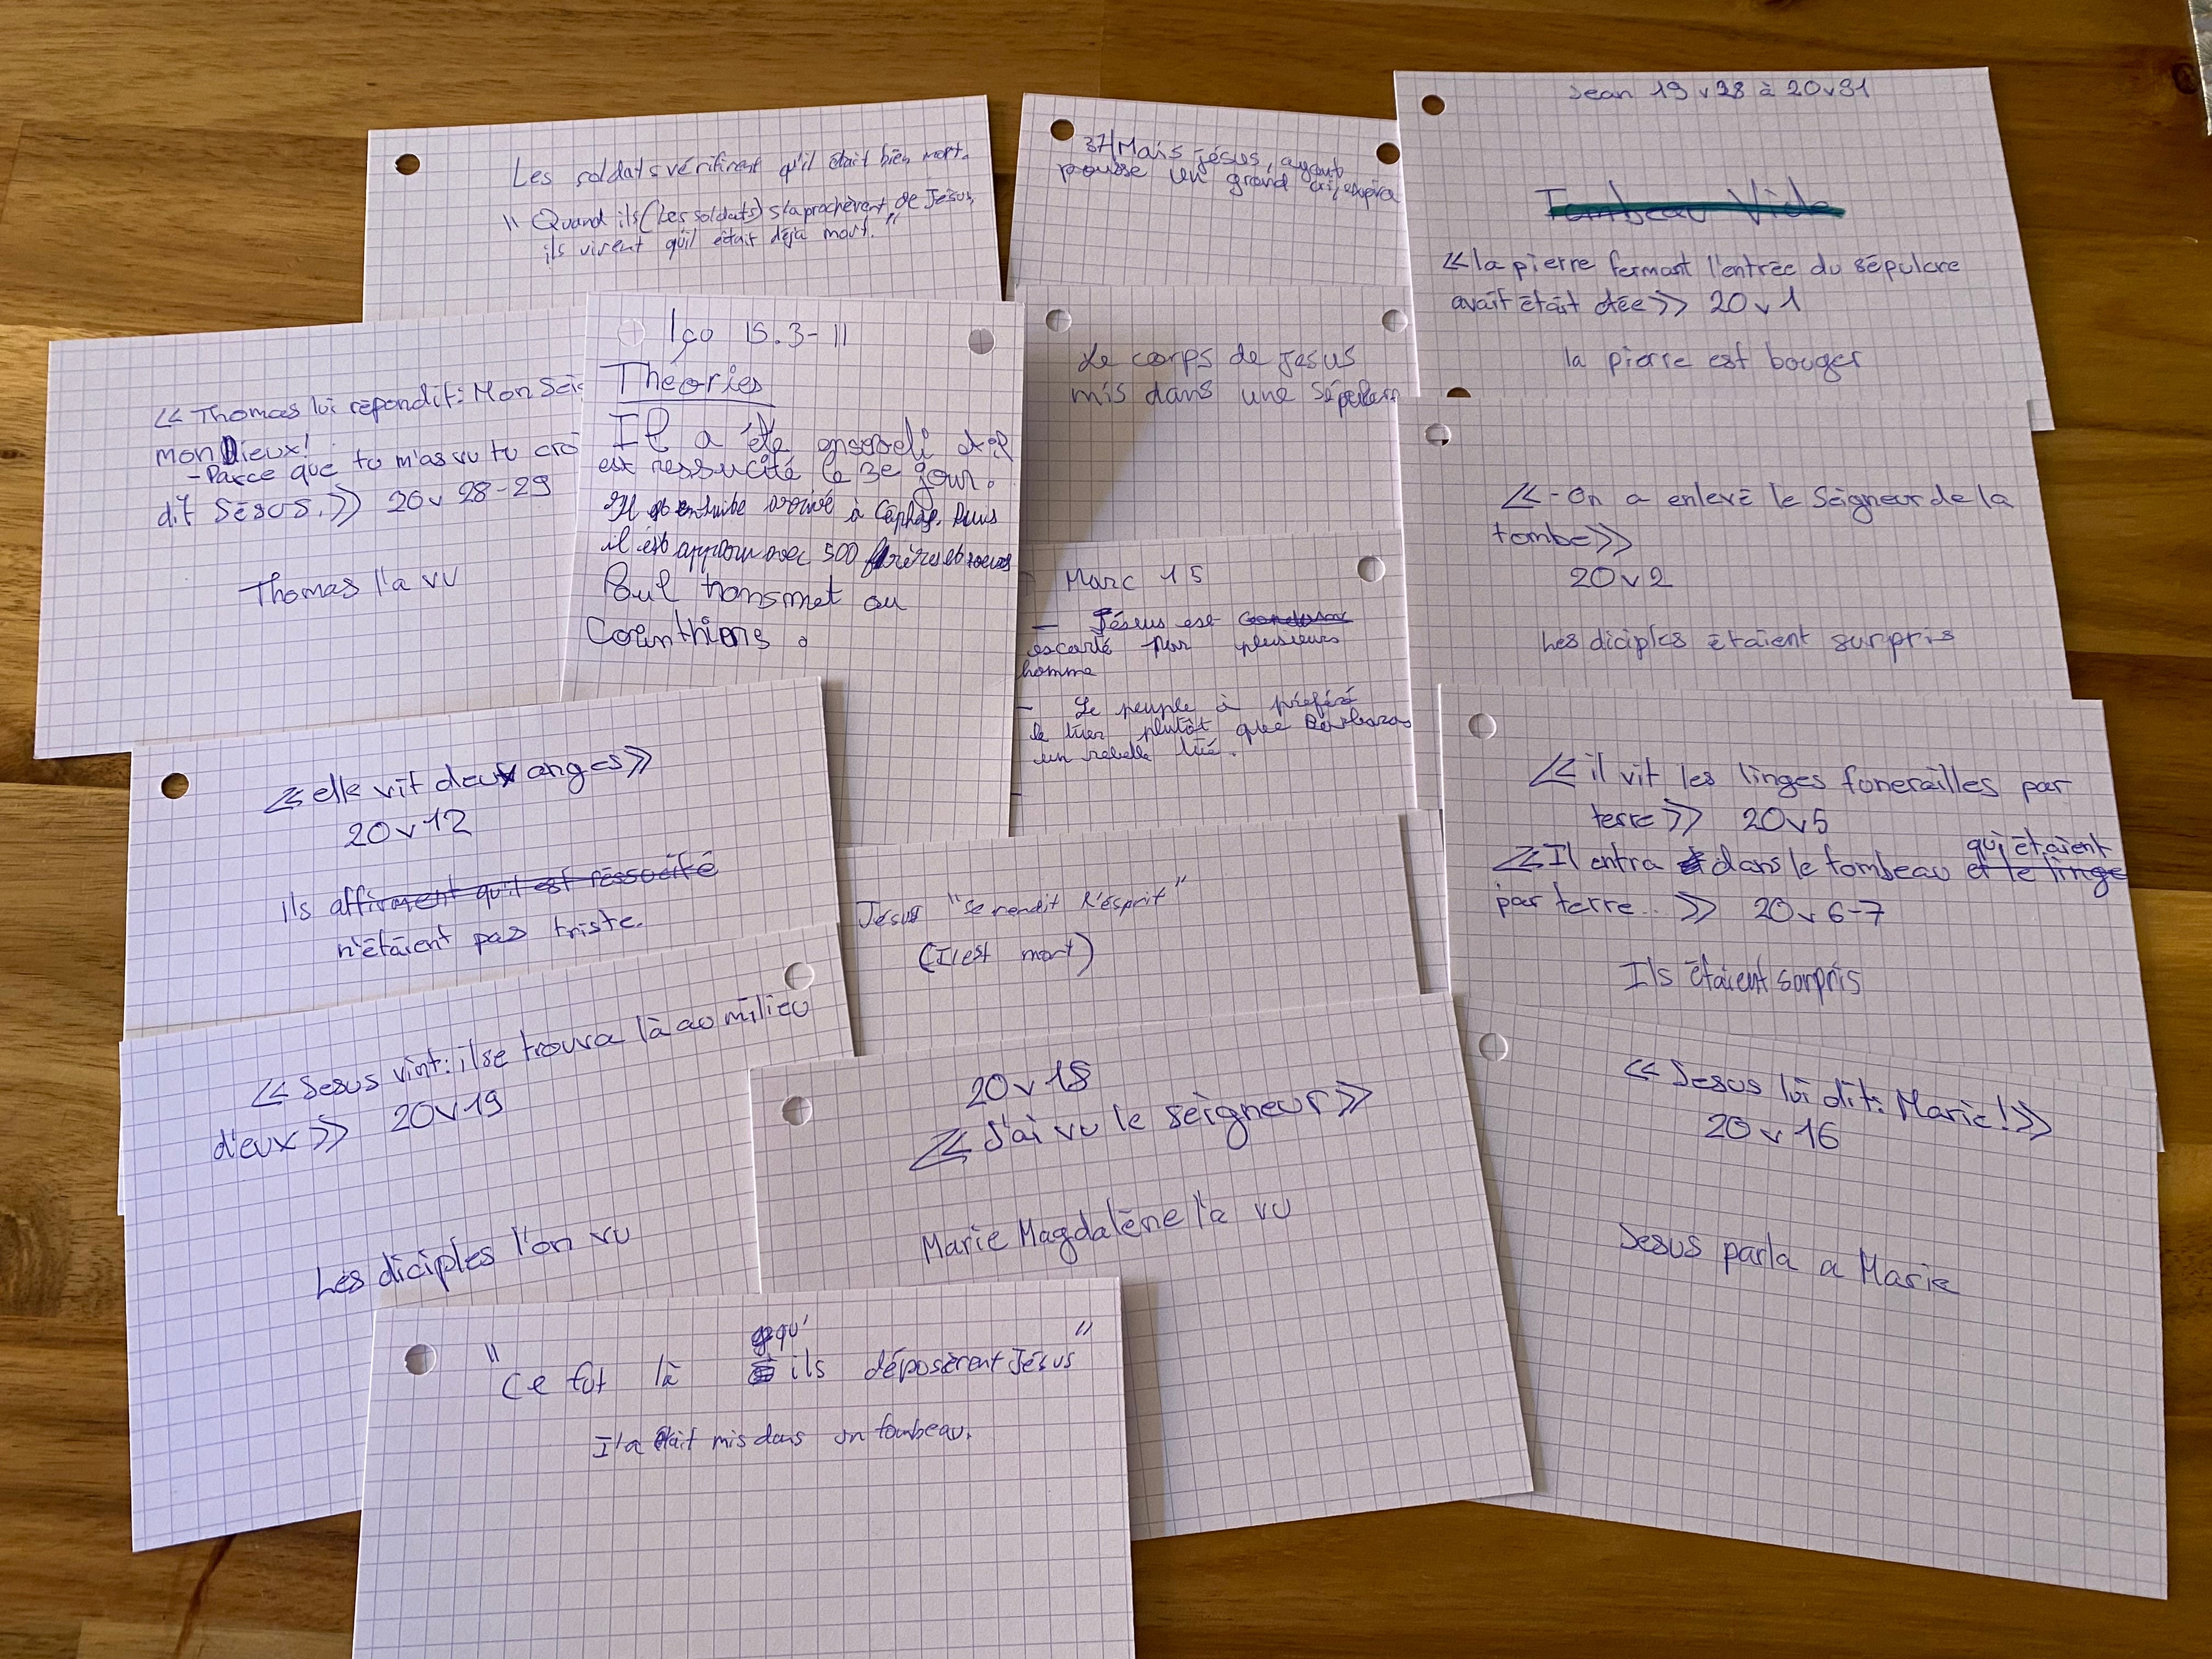 Les soldats vérifirent qu'il était bien mort.
"Quand ils (Les soldats) s'aprochèrent de Jésus,
ils virent qu'il était déjà mort."
37/Mais jésus, ayant
poussé un grand cri, expira
Jean 19 v 38 à 20v31
Tombeau Vide
<<la pierre fermant l'entrée du sépulcre
avait était otée>> 20 v 1
la pierre est bouger
<< Thomas lui répondit: Mon Sei
mon Dieux!
- Parce que tu m'as vu tu croi
dit Jésus.>> 20v 28-29
Thomas l'a vu
1co 15.3-11
Théories
Il a été enseveli et il
est ressucité le 3e jour.
Il ensuite arrivé à Céphas. Puis
il est apparu avec 500 frères et soeurs
Paul transmet au
Corinthiens.
Le corps de Jesus
mis dans une
<<-On a enlevé le Seigneur de la
tombe>>
20v2
Les diciples étaient surpris
Marc 15
- Jésus est
escorté par plusieurs
homme
- Le peuple à préféré
le tuer plutôt que Barbaras
un rebelle tué.
<<elle vit deux anges>>
20v12
ils affirment qu'il est réssucité
n'étaient pas triste.
<<il vit les linges funerailles par
terre>> 20v5
qui étaient
<<Il entra dans le tombeau et le linge
par terre..>> 20v6-7
Ils étaient surpris
Jésus "se rendit l'ésprit"
(Il est mort)
<<Jesus vint: il se trouva là au milieu
d'eux>> 20v19
Les diciples l'on vu
20v18
<<J'ai vu le seigneur>>
Marie Magdalène l'a vu
<<Jesus lui dit: Marie!>>
20v16
Jesus parla a Marie
qu'
"Ce fut là ils déposèrent Jésus"
Il a était mis dans un tombeau.